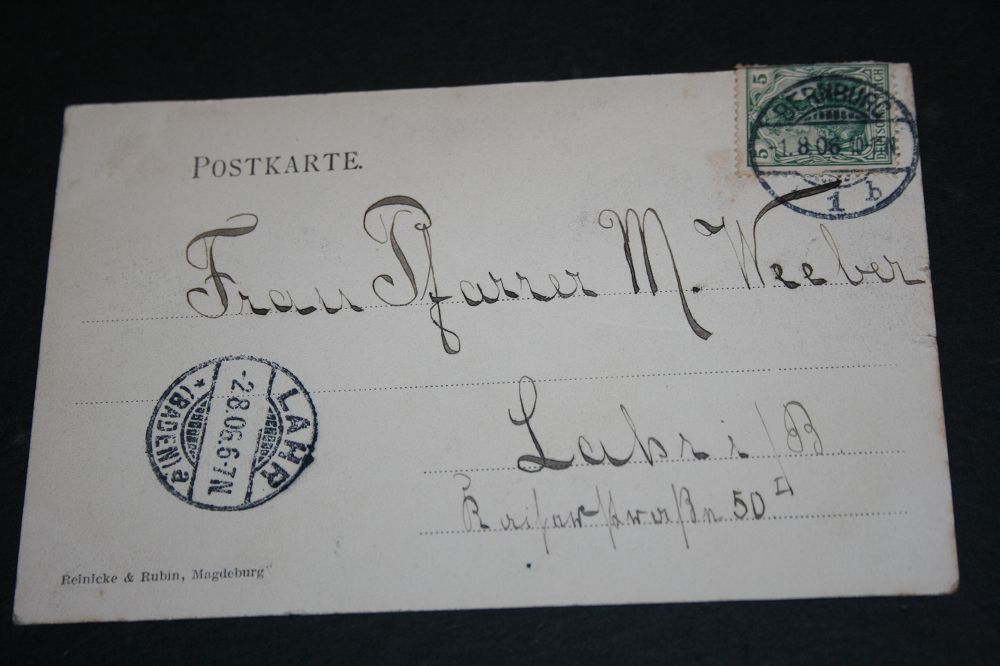 POSTKARTE.
5 5
DEUTSCHES REICH
BERNBURG
-1.8.06.
1 b
Frau Pfarrer M. Weeber
Lahr i/B.
Kaiserstraße 50
LAHR
-2.8.06.6-7N
*(BADEN)a
Reinicke & Rubin, Magdeburg